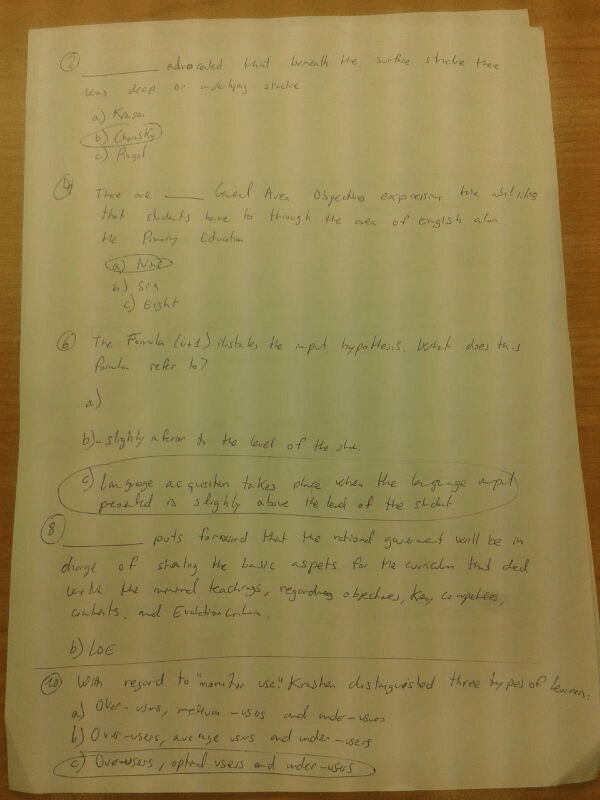 2) ________ advocated that beneath the surface structre there
was deep or underlying structre
a) Krasen
b) Chomsky
c) Piaget
4) There are ____ General Area Objectives expressing the abilities
that students have to through the area of English along
the Primary Education
a) Nine
b) Six
c) Eight
6) The Formula (i+1) ilustrates the input hypothesis. What does this
formula refer to?
a)
b)...slightly inferior to the level of the stu.
c) Language acquisition takes place when the language input
presented is slightly above the level of the student
8) ________ puts forward that the national goverment will be in
charge of stating the basic aspets for the curriculum that deal
with the minimal teachings, regarding objectives, key competences,
contents, and Evaluation criteria.
b) LOE
10) With regard to "monitor use" Krashen distinguished three types of learners:
a) Over-users, medium-users and under-users
b) Over-users, average users and under-users
c) Over-users, optimal users and under-users